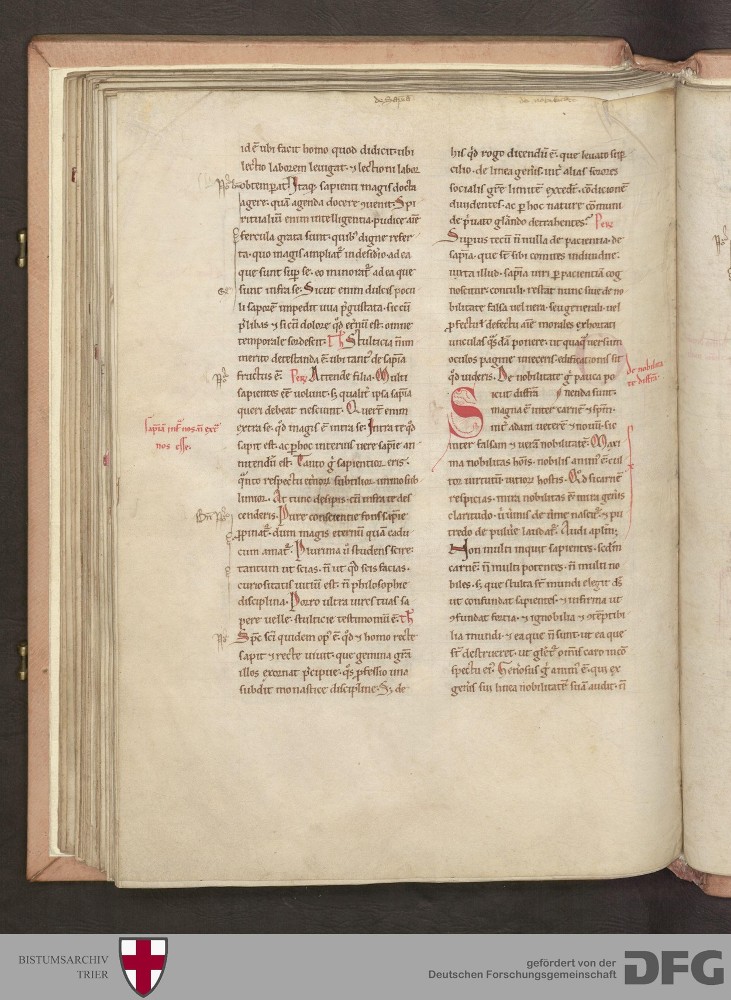 id ē ubi facit homo quod didicit· ubi
lectio laborem leuigat· ⁊ lectioni labor
obtemperat. Itaq; sapienti magis docta
agere· quā agenda docere ꝯuenit. Spi
ritualiū enim intelligentia· pudice aīe
fercula grata sunt· quib; digne refer
ta· quo magis ampliat᷑ in desiderio· ad ea
que sunt sup se· eo minorat᷑ ad ea que
sunt infra se. Sicut enim dulcis pocu
li saporē impedit uua p̄gustata· sic cū
dolore qd et̄nū est· omne
temporale sordescit. Th̄ Stulticia nim
merito detestanda ē ubi tantꝰ de sapīa
fructus ē. Per̄ Attende filia. Multi
sapientes eē uolunt· s; qualit̄ ipsa sapīa
queri debeat nesciunt. Querē enim
extra se· qd magis ē intra se. Intra te qd
sapit est· ac p hoc interius uere sapīe an
nitendū est. Tanto g̊ sapientior eris·
q̄nto respectu et̄norū subtilior· immo sub
limior. At tunc desipis· cū infra te des
cenderis. Pure conscientie fons sapīe
ꝓpinat᷑· dum magis eternū quā cadu
cum amat᷑. Plurima ū studens scire·
tantum ut scias· n̄ ut qd scis facias·
curiositatis uitiū est· n̄ philosophie
disciplina. Porro ultra uires tuas sa
pere uelle· stulticie testimoniū ē. Th̄
Spc̄ sc̄i quidem opꝰ ē· qd ⁊ homo recte
sapit ⁊ recte uiuit· que gemina gr̄a
illos exornat p̄cipue· q̄s pfessio una
subdit monastice discipline. S; de
his qd rogo dicendū ē· que leuato sup
cilio· de linea geñis· int̄ alias sorores
socialis gr̄e limitē excedt̄· cōdicionē
diuidentes· ac p hoc nature cōmuni
de p̄uato gl̄ando detrahentes. Per̄
Superius tecū n̄ nulla de paciencia· de
sapīa· que st̄ sibi comites indiuidue·
iuxta illud· sapīa uiri p pacienciā cog
noscitur· contuli· restat nunc siue de no
bilitate falsa uel uera· seu generali· uel
ꝓfectu ꝉ defectu aīe morales exhortati
unculas q̄sdā ponere· ut quaq̄uersum
oculos pagine inieceris· edificationis sit
qd uideris. De nobilitate g̊ pauca po
nenda sunt.
Sicut diffr̄a
magna ē inter carnē ⁊ spm̄·
int̄ adam ueterē ⁊ nouū· sic
inter falsam ⁊ uerā nobilitatē. Maxi
ma nobilitas hōis· nobilis animꝰ ē· cul
tor uirtutū· uitiorū hostis. Qd si carnē
respicias· mira nobilitas ē mira geñis
claritudo· ū uīmis de uīme nascit᷑· ⁊ pu
tredo de puluīe laudat᷑. Audi aplm̄;
Non multi inquit sapientes· scdm̄
carnē· n̄ multi potentes· n̄ multi no
biles· s; que stulta st̄ mundi elegit ds̄
ut confundat sapientes· ⁊ infirma ut
ꝯfundat fortia· ⁊ ignobilia ⁊ ꝯtēptibi
lia mundi· ⁊ ea que n̄ sunt· ut ea que
st̄ destrueret· ut n̄ gl̄et᷑ om̄is caro in cō
spectu eiꝰ. Generosus g̊ animꝰ ē· qui ex
geñis sui linea nobilitatē suā audit· n̄
sapīam int᷑ nos n̄ ext᷑
nos esse.
de nobilita
te diffr̄a.
BISTUMSARCHIV
TRIER
gefördert von der
Deutschen Forschungsgemeinschaft
DFG